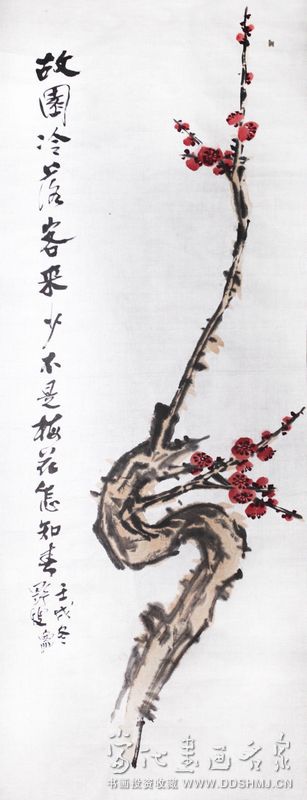 故園冷落客来少不是梅花怎知春
壬戌冬
当代書画名家
书画投资收藏 WWW.DDSHMJ.CN